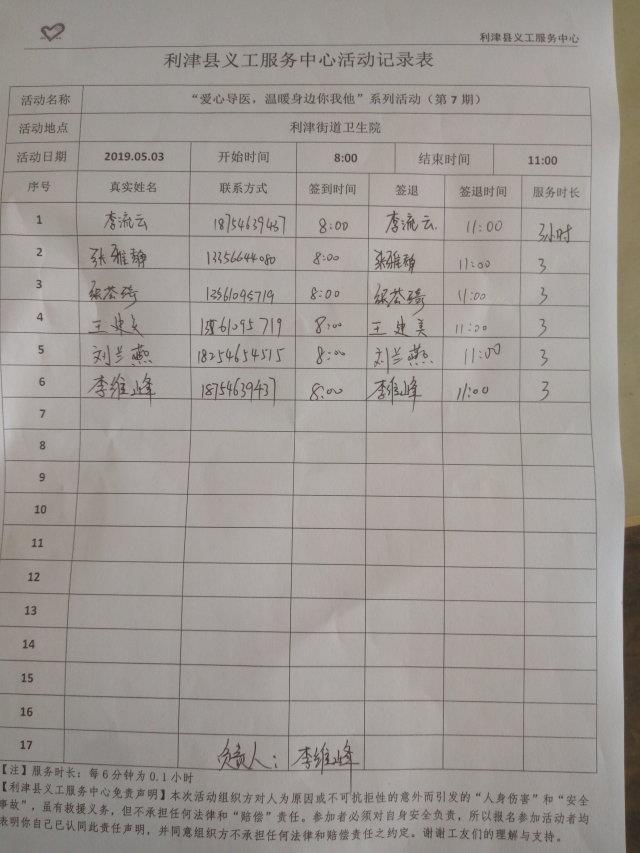 利津县义工服务中心
利津县义工服务中心活动记录表
活动名称 “爱心导医，温暖身边你我他”系列活动（第 7 期）
活动地点 利津街道卫生院
活动日期 2019.05.03 开始时间 8:00 结束时间 11:00
序号 真实姓名 联系方式 签到时间 签退 签退时间 服务时长
1 李流云 18754639437 8:00 李流云 11:00 3小时
2 张雅静 13356644080 8:00 张雅静 11:00 3
3 8:00 11:00 3
4 王建美 8:00 王建美 11:00 3
5 刘兰燕 18254654515 8:00 刘兰燕 11:00 3
6 李维峰 18754639437 8:00 李维峰 11:00 3
7
8
9
10
11
12
13
14
15
16
17 负责人：李维峰
【注】服务时长：每 6 分钟为 0.1 小时
【利津县义工服务中心免责声明】本次活动组织方对人为原因或不可抗拒性的意外而引发的“人身伤害”和“安全
事故”，虽有救援义务，但不承担任何法律和“赔偿”责任。参加者必须对自身安全负责，所以报名参加活动者均
表明你自己已认同此责任声明，并同意组织方不承担任何法律和赔偿责任之约定。谢谢工友们的理解与支持。